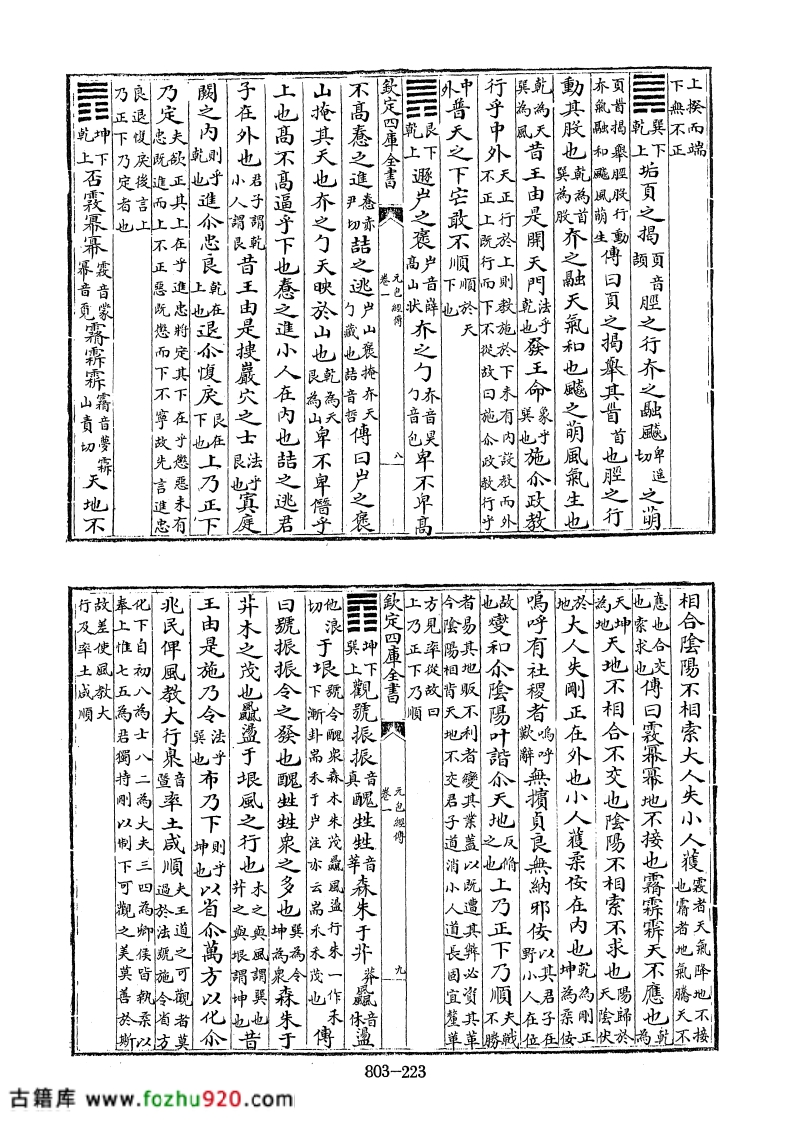 上揆而端
下無不正
巽下
乾上
姤頁之揭
頁音
頡
脛之行夰之融飈
卑遙
切
之萌
頁首揭舉脛股行動
夰氣融和飈風萌生
傳曰頁之揭舉其𩠐
首
也脛之行
動其股也
乾為首
巽為股
夰之融天氣和也飈之萌風氣生也
乾為天
巽為風
昔王由是開天門
法乎
乾也
發王命
象乎
巽也
施尒政教
行乎中外
天正行於上則教施於下未有内設教而外
不正上旣行而下不從故曰施尒政教行乎
中
外
普天之下宓敢不順
順於天
下也
艮下
乾上
遯屵之褒
屵音嶭
高山狀
夰之勹
夰音昊
勹音包
卑不卑高
欽定四庫全書
元包經傳
卷一
八
不高惷之進
惷赤
尹切
詰之逃
屵山褒掩夰天
勹藏也詰音哲
傳曰屵之褒
山掩其天也夰之勹天映於山也
乾為天
艮為山
卑不卑僭乎
上也高不高逼乎下也惷之進小人在内也詰之逃君
子在外也
君子謂乾
小人謂艮
昔王由是㨗巖穴之士
法乎
艮也
寘庭
闕之内
則乎
乾也
進尒忠良
乾在
上也
退尒愎戾
艮在
下也
上乃正下
乃定
夫欲正其上在乎進忠將定其下在乎懲惡未有
忠旣進而上不正惡旣懲而下不寧故先言進忠
良退愎戾後言上
乃正下乃定者也
坤下
乾上
否霚冪冪
霚音蒙
冪音覓
霿霹霹
霿音夢霹
山責切
天地不
相合陰陽不相索大人失小人獲
霚者天氣降地不接
也霿者地氣騰天不
應也合交
也索求也
傳曰霚冪冪地不接也霿霹霹天不應也
乾
為
天坤
為地
天地不相合不交也陰陽不相索不求也
陽歸於
天陰伏
於
地
大人失剛正在外也小人獲柔佞在内也
乾為剛正
坤為柔佞
嗚呼有社稷者
嗚呼
歎辭
無擯貞良無納邪佞
以其君子在
野小人在位
故
也
變和尒陰陽叶諧尒天地
反脩
之也
上乃正下乃順
夫戰
不勝
者易其地販不利者變其業蓋以旣遭其弊必資其革
今陰陽相背天地不交君子道消小人道長固宜釐革
方見率從故曰
上乃正下乃順
欽定四庫全書
元包經傳
卷一
九
坤下
巽上
觀號振振
音
真
醜甡甡
音
莘
森朱于茻
莽
飍
音
休
盪
他浪
切
于垠
號令醜衆森木朱茂飍風盪行朱一作禾
下漸卦耑禾于屵注亦云耑水禾茂也
傳
曰號振振令之發也醜甡甡衆之多也
巽為令
坤為衆
森朱于
茻木之茂也飍盪于垠風之行也
木之與風謂巽也
茻之與垠謂坤也
昔
王由是施乃令
法乎
巽也
布乃下
則乎
坤也
以省尒萬方以化尒
兆民俾風教大行臮
音
曁
率土咸順
夫王道之可觀者莫
過於法號施令省方
化下自初八為士八二為大夫三四為卿侯皆執柔以
奉上惟七五為君獨持剛以制下可觀之美莫善於斯
故差使風教大
行及率土咸順
803—223
古籍库 www.fozhu920.com